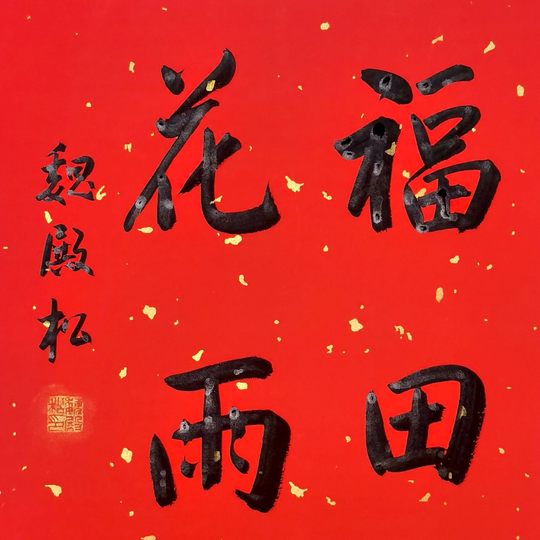 福田
花雨
魏殿松